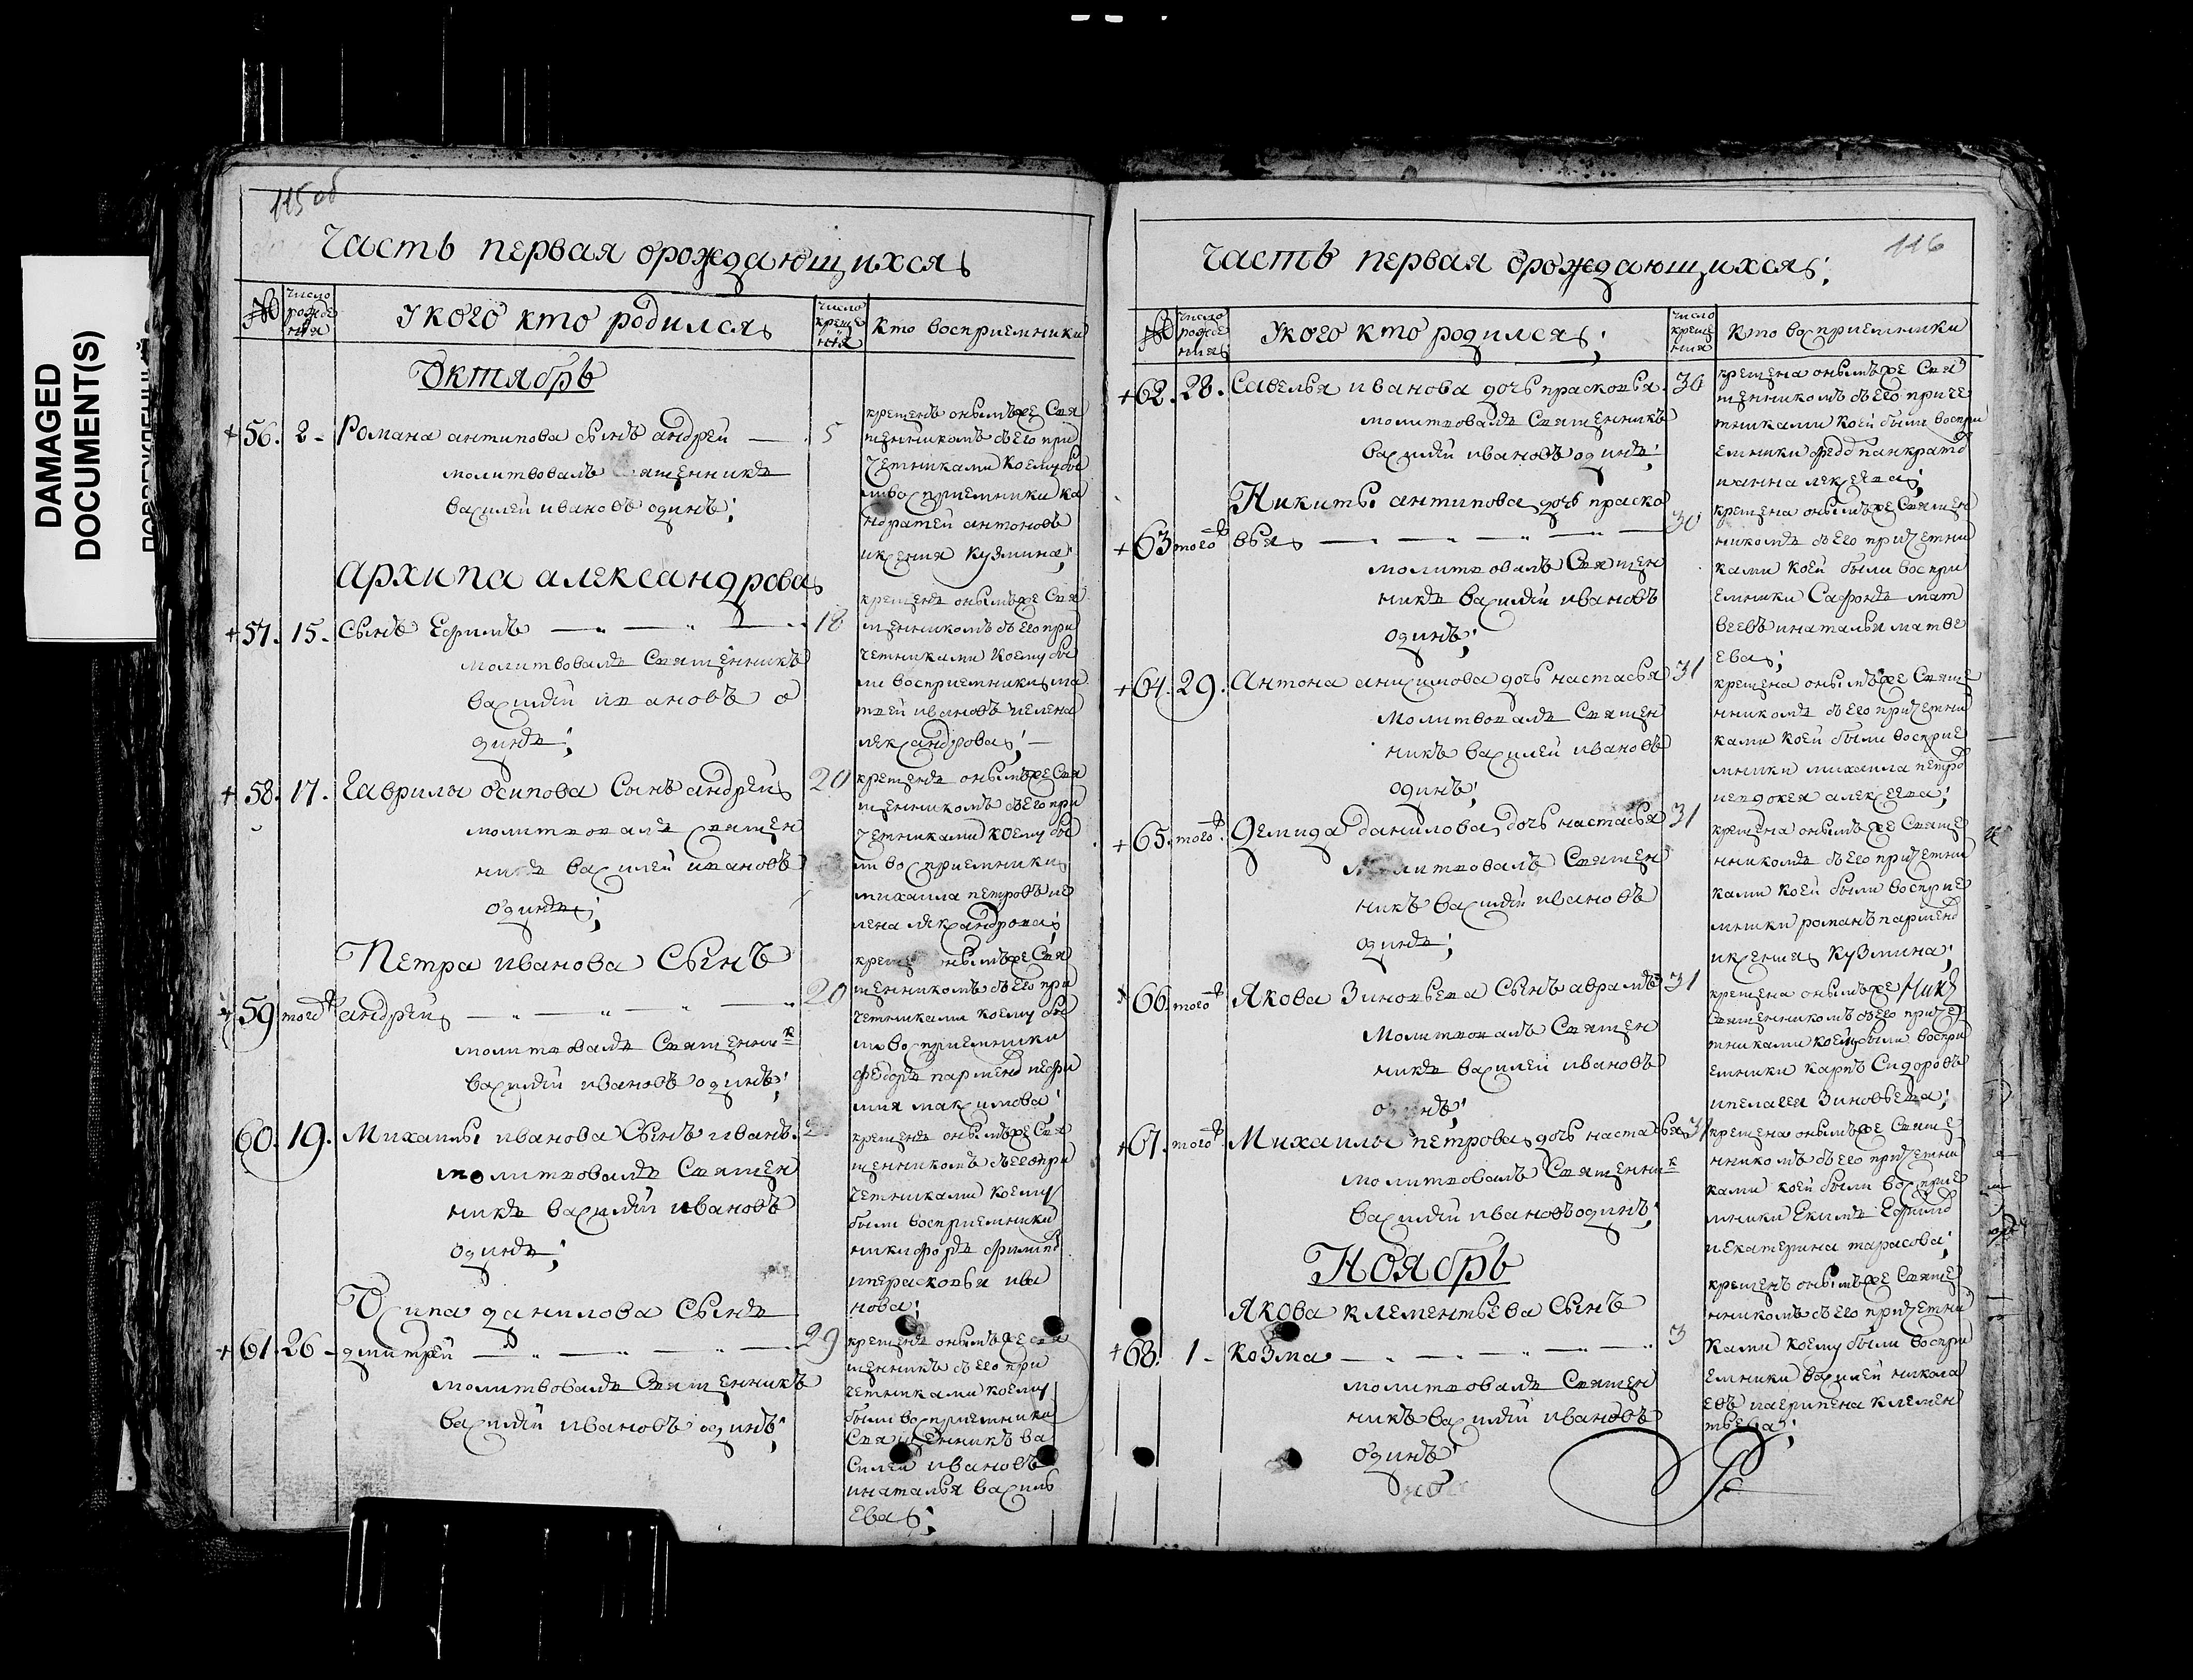 DAMAGED
DOCUMENT(S)
115 об
Часть первая орождающихся
№
число
рожде
ния
У кого кто родился
число
креще
ния
кто восприемники
Октябрь
+56. 2 - Романа антипова сынъ андрей 5
молитвовалъ священникъ
василей ивановъ одинъ;
крещенъ онымъже свя
щенникомъ съ его при
четниками коему бы
ли восприемники ка
ндратей антоновъ
иксения кузмина;
архипа александрова
+57. 15. сынъ Ефимъ 18
молитвовалъ священникъ
василий ивановъ о
динъ;
крещенъ онымъже свя
щенникомъ съ его при
четниками коему бы
ли восприемники ма
твей ивановъ иелена
лександрова;
+58. 17. Гаврилы осипова сынъ андрей 20
молитвовалъ священ
никъ василей ивановъ
одинъ;
крещенъ онымъже свя
щенникомъ съ его при
четниками коему бы
ли восприемники
михаила петровъ ие
лена лександрова;
Петра иванова сынъ
+59 тогожъ андрей 20
молитвовалъ священникъ
василий ивановъ одинъ;
крещенъ онымъже свя
щенникомъ съ его при
четниками коему бы
ли восприемники
федоръ парменов иефи
мия максимова;
60. 19. Михаилы иванова сынъ иванъ. 2
молитвовалъ священ
никъ василий ивановъ
одинъ;
крещенъ онымъже свя
щенникомъ съ его при
четниками коему
были восприемники
никифоръ филипо
ипрасковья ива
нова;
Осипа данилова сынъ
+61. 26 - дмитрей 29
молитвовалъ священникъ
василий ивановъ одинъ;
крещенъ онымъже свя
щенникъ съ его при
четниками коему
были восприемники
священникъ ва
силей ивановъ
инаталья василь
ева;
116
Часть первая орождающихся;
№
число
рожде
ния
У кого кто родился;
число
креще
ния
кто восприемники
+62. 28. Савелья иванова дочь прасковья. 30
молитвовалъ священникъ
василий ивановъ одинъ;
крещена онымъже свя
щенникомъ съ его приче
тниками коей были воспри
емники федо панкрато
ианна лексеева;
Никиты антипова дочь праско
+63 тогожъ вья 30
молитвовалъ священ
никъ василий ивановъ
одинъ;
крещена онымъже священ
никомъ съ его причетни
ками коей были воспри
емники Сафонъ мат
веевъ инаталья матве
ева;
+64. 29. Антона анисимова дочь настасья 31
молитвовалъ священ
никъ василей ивановъ
одинъ;
крещена онымъже свяще
нникомъ съ его причетни
ками коей были восприе
мники михаила петро
иевдокея алексеева;
+65. тогожъ. Демида данилова дочь настасья 31
молитвовалъ священ
никъ василий ивановъ
одинъ;
крещена онымъже свяще
нникомъ съ его причетни
ками коей были восприе
мники романъ пармено
иксения кузмина;
+66. тогожъ Якова Зиновьева сынъ аврамъ 31
молитвовалъ священ
никъ василей ивановъ
одинъ;
крещена онымъже
священникомъ съ его причет
тниками коему были воспри
емники карпъ Сидоровъ
ипелагея Зиновьева;
+67. тогожъ Михаилы петрова дочь настасья 31
молитвовалъ священникъ
василий ивановъ одинъ;
крещена онымъже свяще
нникомъ съ его причетни
ками коей были восприе
мники Екимъ Ефимо
иекатерина тарасова;
Ноябрь
Якова клементьева сынъ
+68. 1 - козма 3
молитвовалъ священ
никъ василий ивановъ
одинъ;
крещенъ онымъже свяще
нникомъ съ его причетни
ками коему были воспри
емники василей никола
евъ иагрипена клемен
тьева;